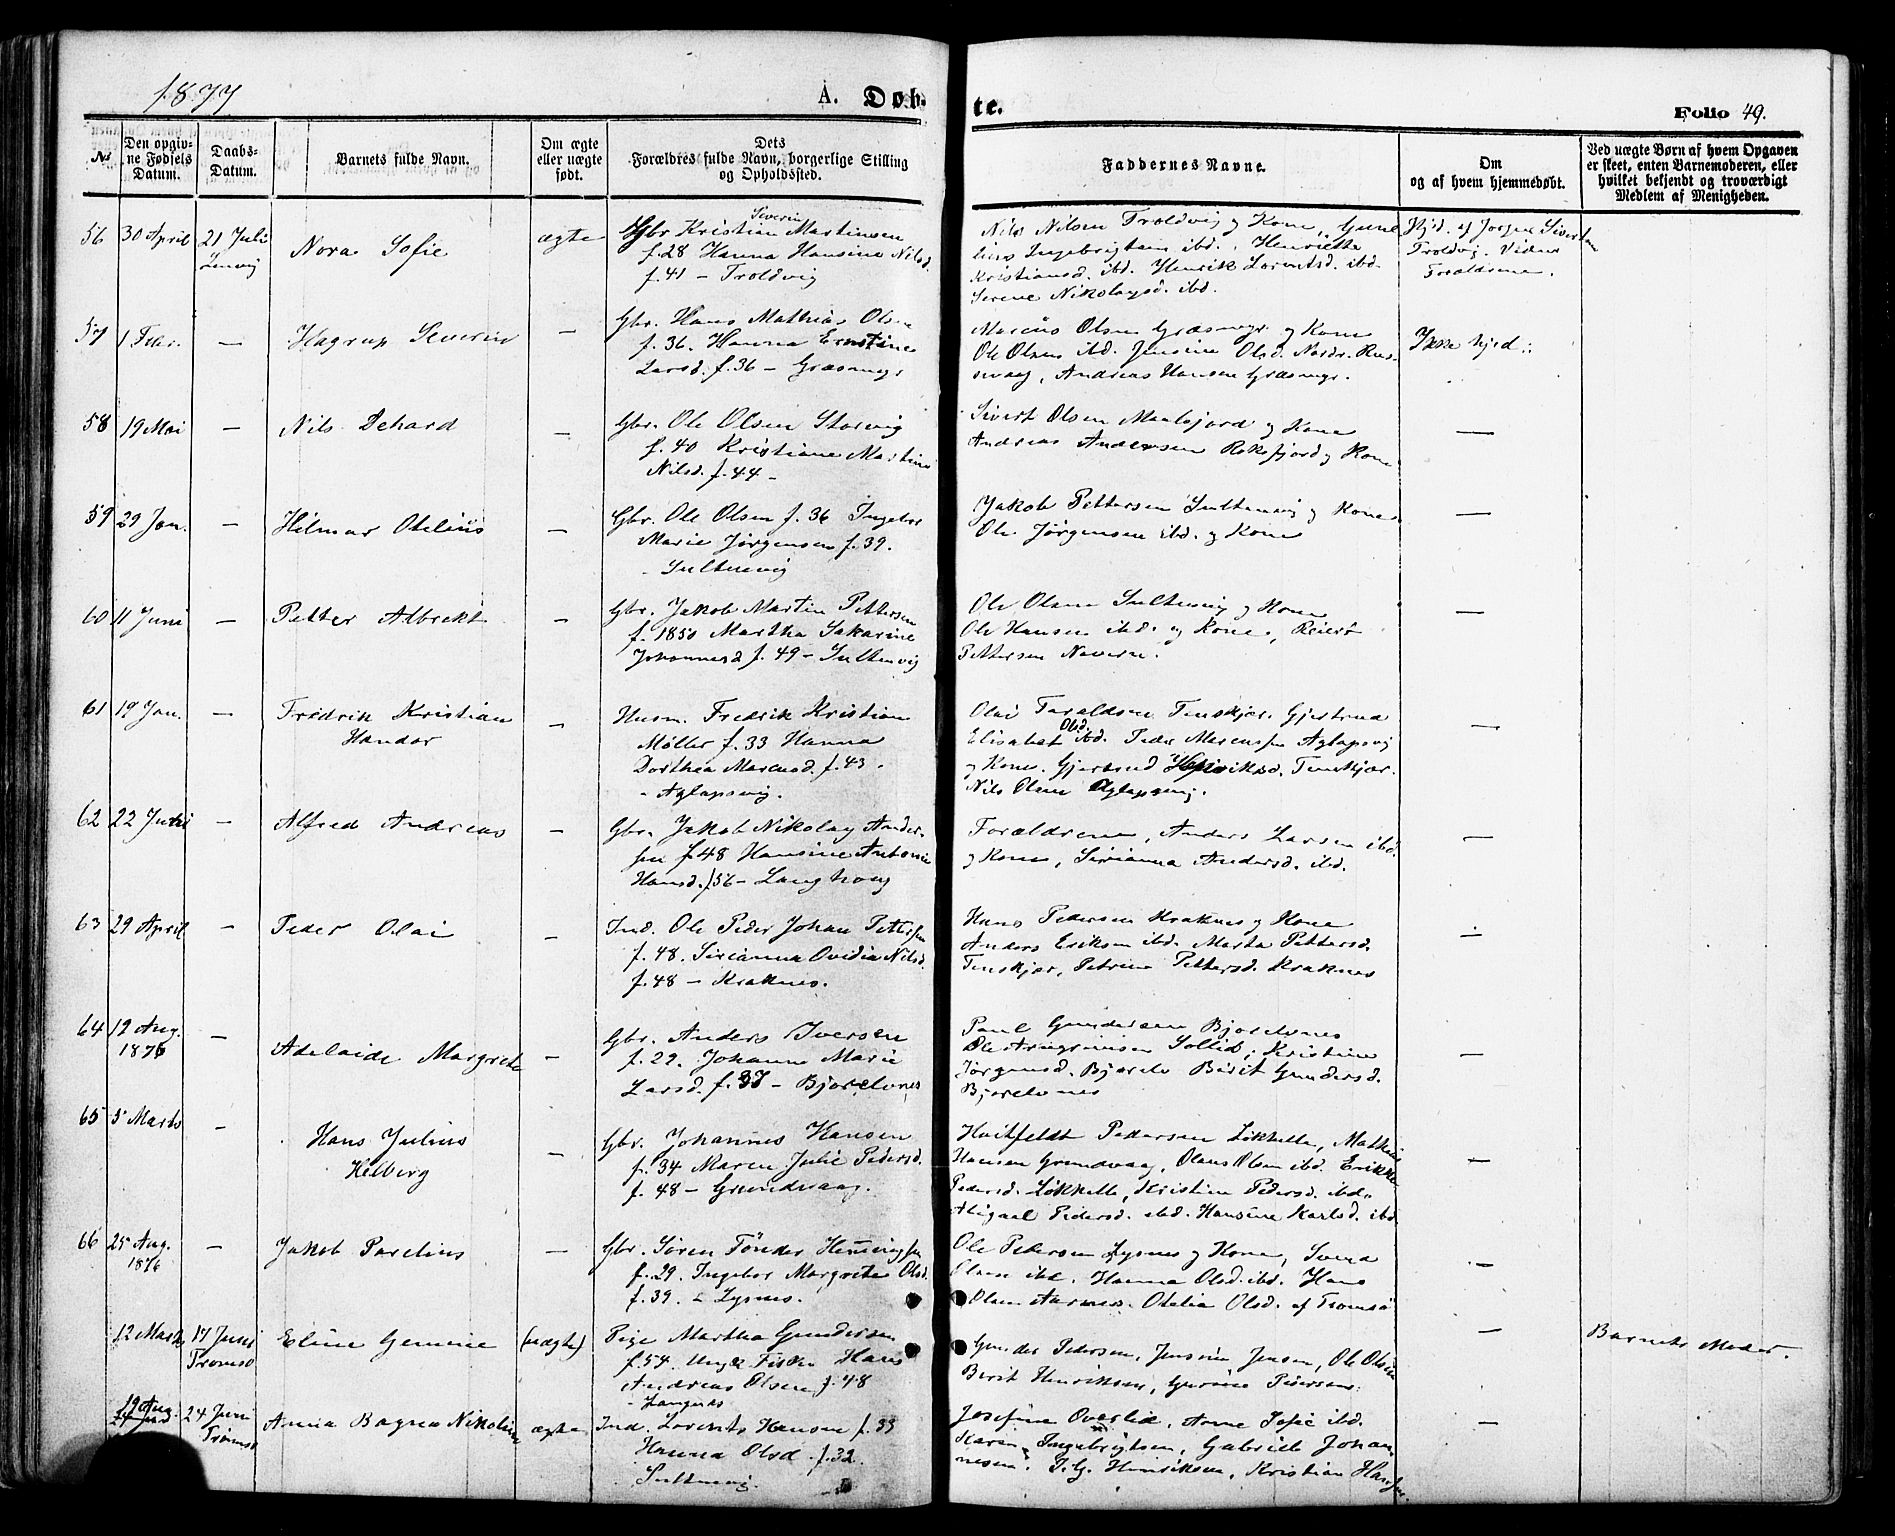 1877
A. Døb-
te.
Folio 49.
No
Den opgiv-
ne Fødsels
Datum.
Daabs-
Datum.
Barnets fulde Navn.
Om ægte
eller uægte
født.
Dets
Forældres fulde Navn, borgerlige Stilling
og Opholdssted.
Faddernes Navne.
Om
og af hvem hjemmedøbt.
Ved uægte Børn af hvem Opgaven
er skeet, enten Barnemoderen, eller
hvilket bekjendt og troværdigt
Medlem af Menigheden.
56 30 April 21 Juli Nora Sofie ægte Gbr Kristian Severin Martinsen
Lenvig
f.28 Hanna Hansine Nilsd.
f.41 - Troldvig
Nils Nilsen Troldvig og Kone,
Ingebrigtsen ibd., Henriette
Kristiansd. ibd. Henrik Lorentsd. ibd.
Serene Nikolaysd. ibd.
Hjd. af Jørgen Sivertsen
Troldvig. Vidner
Forældrene.
57 1 Febr. - Hagrup Severin - Gbr. Hans Mathias Olsen
f.36. Hanna Ernstine
Larsd. f.36 - Græsmyr
Marcus Olsen Græsmyr og Kone
Ole Olsen ibd. Jensine Olsd. Nordr.
Andreas Hansen Græsmyr.
Ikke hjd.
58 19 Mai - Nils Dehard - Gbr. Ole Olsen Storvig
f.40 Kristiane Martine
Nilsd. f.44 -
Sivert Olsen og Kone
Andreas Andersen Roksfjord og Kone
-
59 29 Jan. - Hilmar Otelius - Gbr. Ole Olsen f.36 Ingebor
Marie Jørgensen f.39.
- Sultenvig
Jakob Pettersen Sultenvig og Kone
Ole Jørgensen ibd. og Kone
-
60 11 Juni - Petter Albrekt - Gbr. Jakob Martin Pettersen
f.1850 Martha Sakarine
Johannesd f.49 - Sultenvig
Ole Olsen Sultenvig og Kone
Ole Hansen ibd. og Kone,
Pettersen
-
61 19 Jan. - Fredrik Kristian - Husm. Fredrik Kristian
Hendor
Møller f.33 Hanna
Dorthea Marcusd. f.43.
- Aglapsvig.
Olai Taraldsen Tenskjær. Gjertrud
Elisabet Olsd. ibd. Peder Marcussen Aglapsvig
og Kone. Gjertrud Henriksd. Tenskjær.
Nils Olsen Aglapsvig.
-
62 22 Juni - Alfred Andreas - Gbr. Jakob Nikolay Ander-
sen f.48 Hansine Antonie
Hansd. f.56 - Langhaug
Forældrene, Anders Larsen ibd.
og Kone, Sirianna Andersd. ibd.
-
63 29 April - Peder Olai - Ind. Ole Peder Johan Pettersen
f.48. Sirianna Ovidia Nilsd.
f.48 - Kraknes.
Hans Pedersen Kraknes og Kone
Anders Eriksen ibd. Marta Pettersd.
Tenskjær, Petrine Pettersd. Kraknes
-
64 12 Aug. - Adelaide Margrete - Gbr. Anders Iversen
1876
f.29. Johanne Marie
Larsd. f.37 - Bjorelvnes
Paul Gundersen Bjorelvnes
Ole Arngrimsen Sollid, Kristine
Jørgensd. Bjorelv Berit Gundersd.
Bjorelvnes
-
65 5 Marts - Hans Julius - Gbr. Johannes Hansen
Helberg
f.34 Maren Julie Pedersd.
f.48 - Grundvaag.
Hvitfeldt Pedersen Løkkelle, Mathias
Hansen Grundvaag, Olaus Olsen ibd. Erikka
Pedersd. Løkkelle, Kristine Pedersd. ibd.
Abigael Pedersd. ibd. Hansine Karlsd. ibd.
-
66 25 Aug. - Jakob Parelius - Gbr. Søren Tönder Henningsen
1876
f.29. Ingebor Margrete Olsd.
f.39. - Lysnes.
Ole Pedersen Lysnes og Kone, Svend
Olsen ibd. Hanna Olsd. ibd. Hans
Olsen Aarnes. Otelia Olsd. af Tromsø
-
12 Marts 17 Juni Eline Gemine (uægte) Pige Martha Gundersen
Tromsø
f.54. Ungk. Fisker Hans
Andreas Olsen f.48
- Langnes
Gunder Pedersen, Jensine Jensen, Ole Olsen
Berit Henriksen, Pedersen.
-
Barnets Moder.
19 Aug. 24 Juni Anna Bagna Nikoline ægte Ind. Lorents Hansen f.33
Tromsø
Hanna Olsd. f.32.
Sultenvig.
Josefine Overlid, Anne Sofie ibd.
Karen Ingebrigtsen, Gabriel Johan-
nesen. P.G. Henriksen, Kristian Hansen.
-